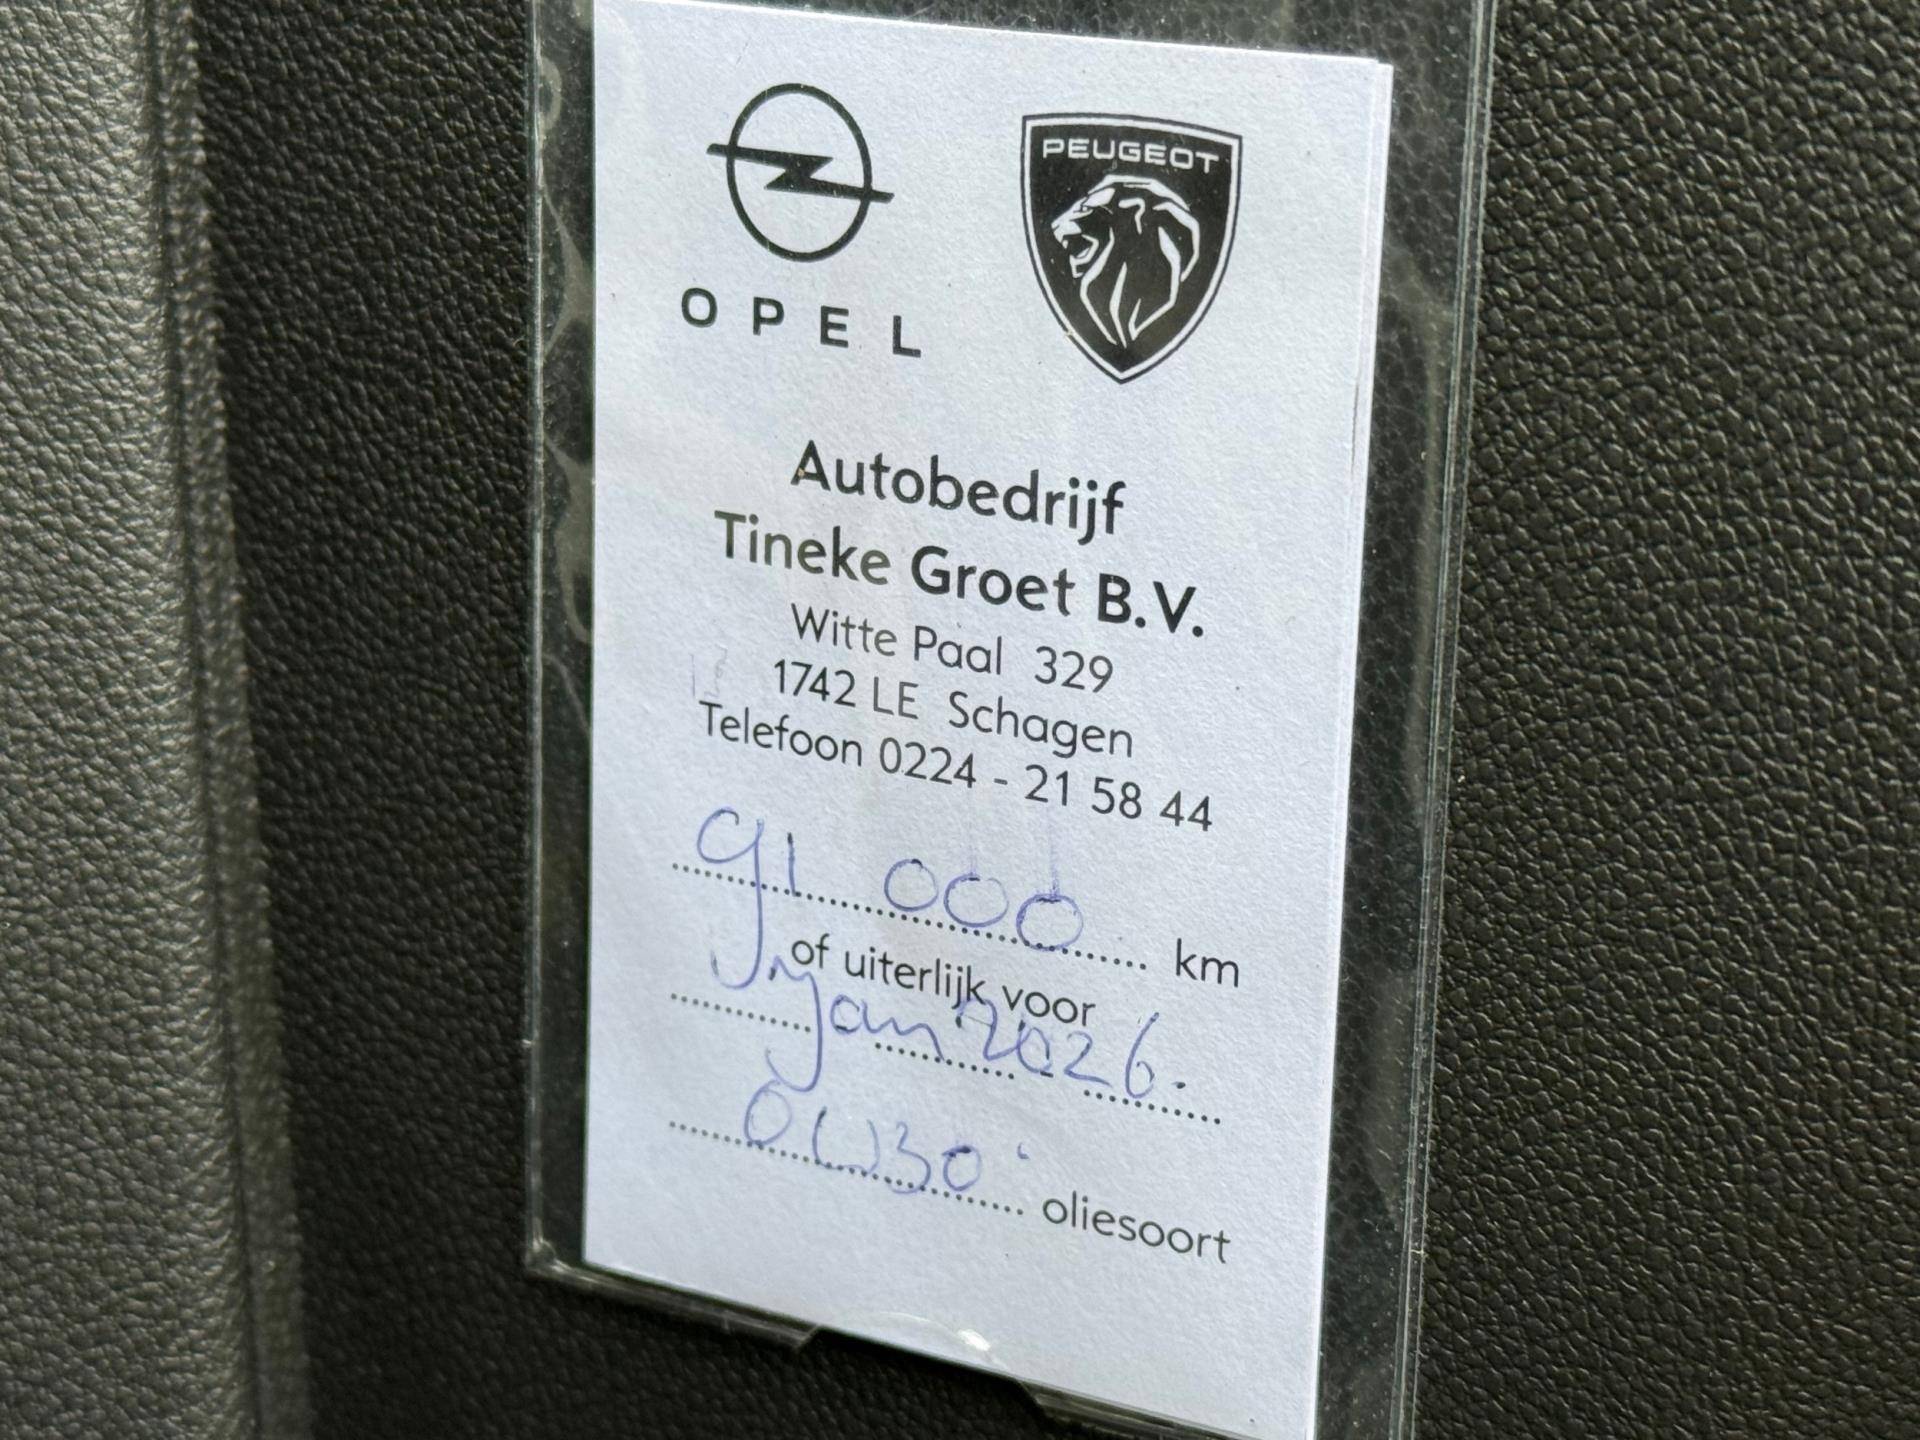 OPEL
PEUGEOT
Autobedrijf
Tineke Groet B.V.
Witte Paal 329
1742 LE Schagen
Telefoon 0224 - 21 58 44
91 000 km
of uiterlijk voor
jan 2026.
0W30 oliesoort